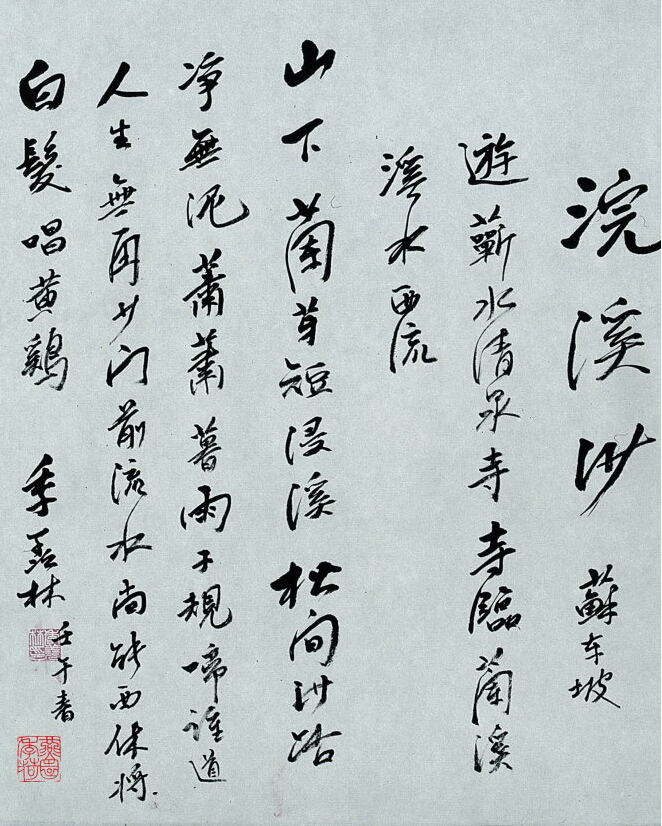 浣溪沙 蘇東坡
遊蘄水清泉寺寺臨蘭溪
溪水西流
山下蘭芽短浸溪松間沙路
净無泥蕭蕭暮雨子規啼誰道
人生無再少門前流水尚能西休將
白髮唱黄鷄 季羨林
壬午